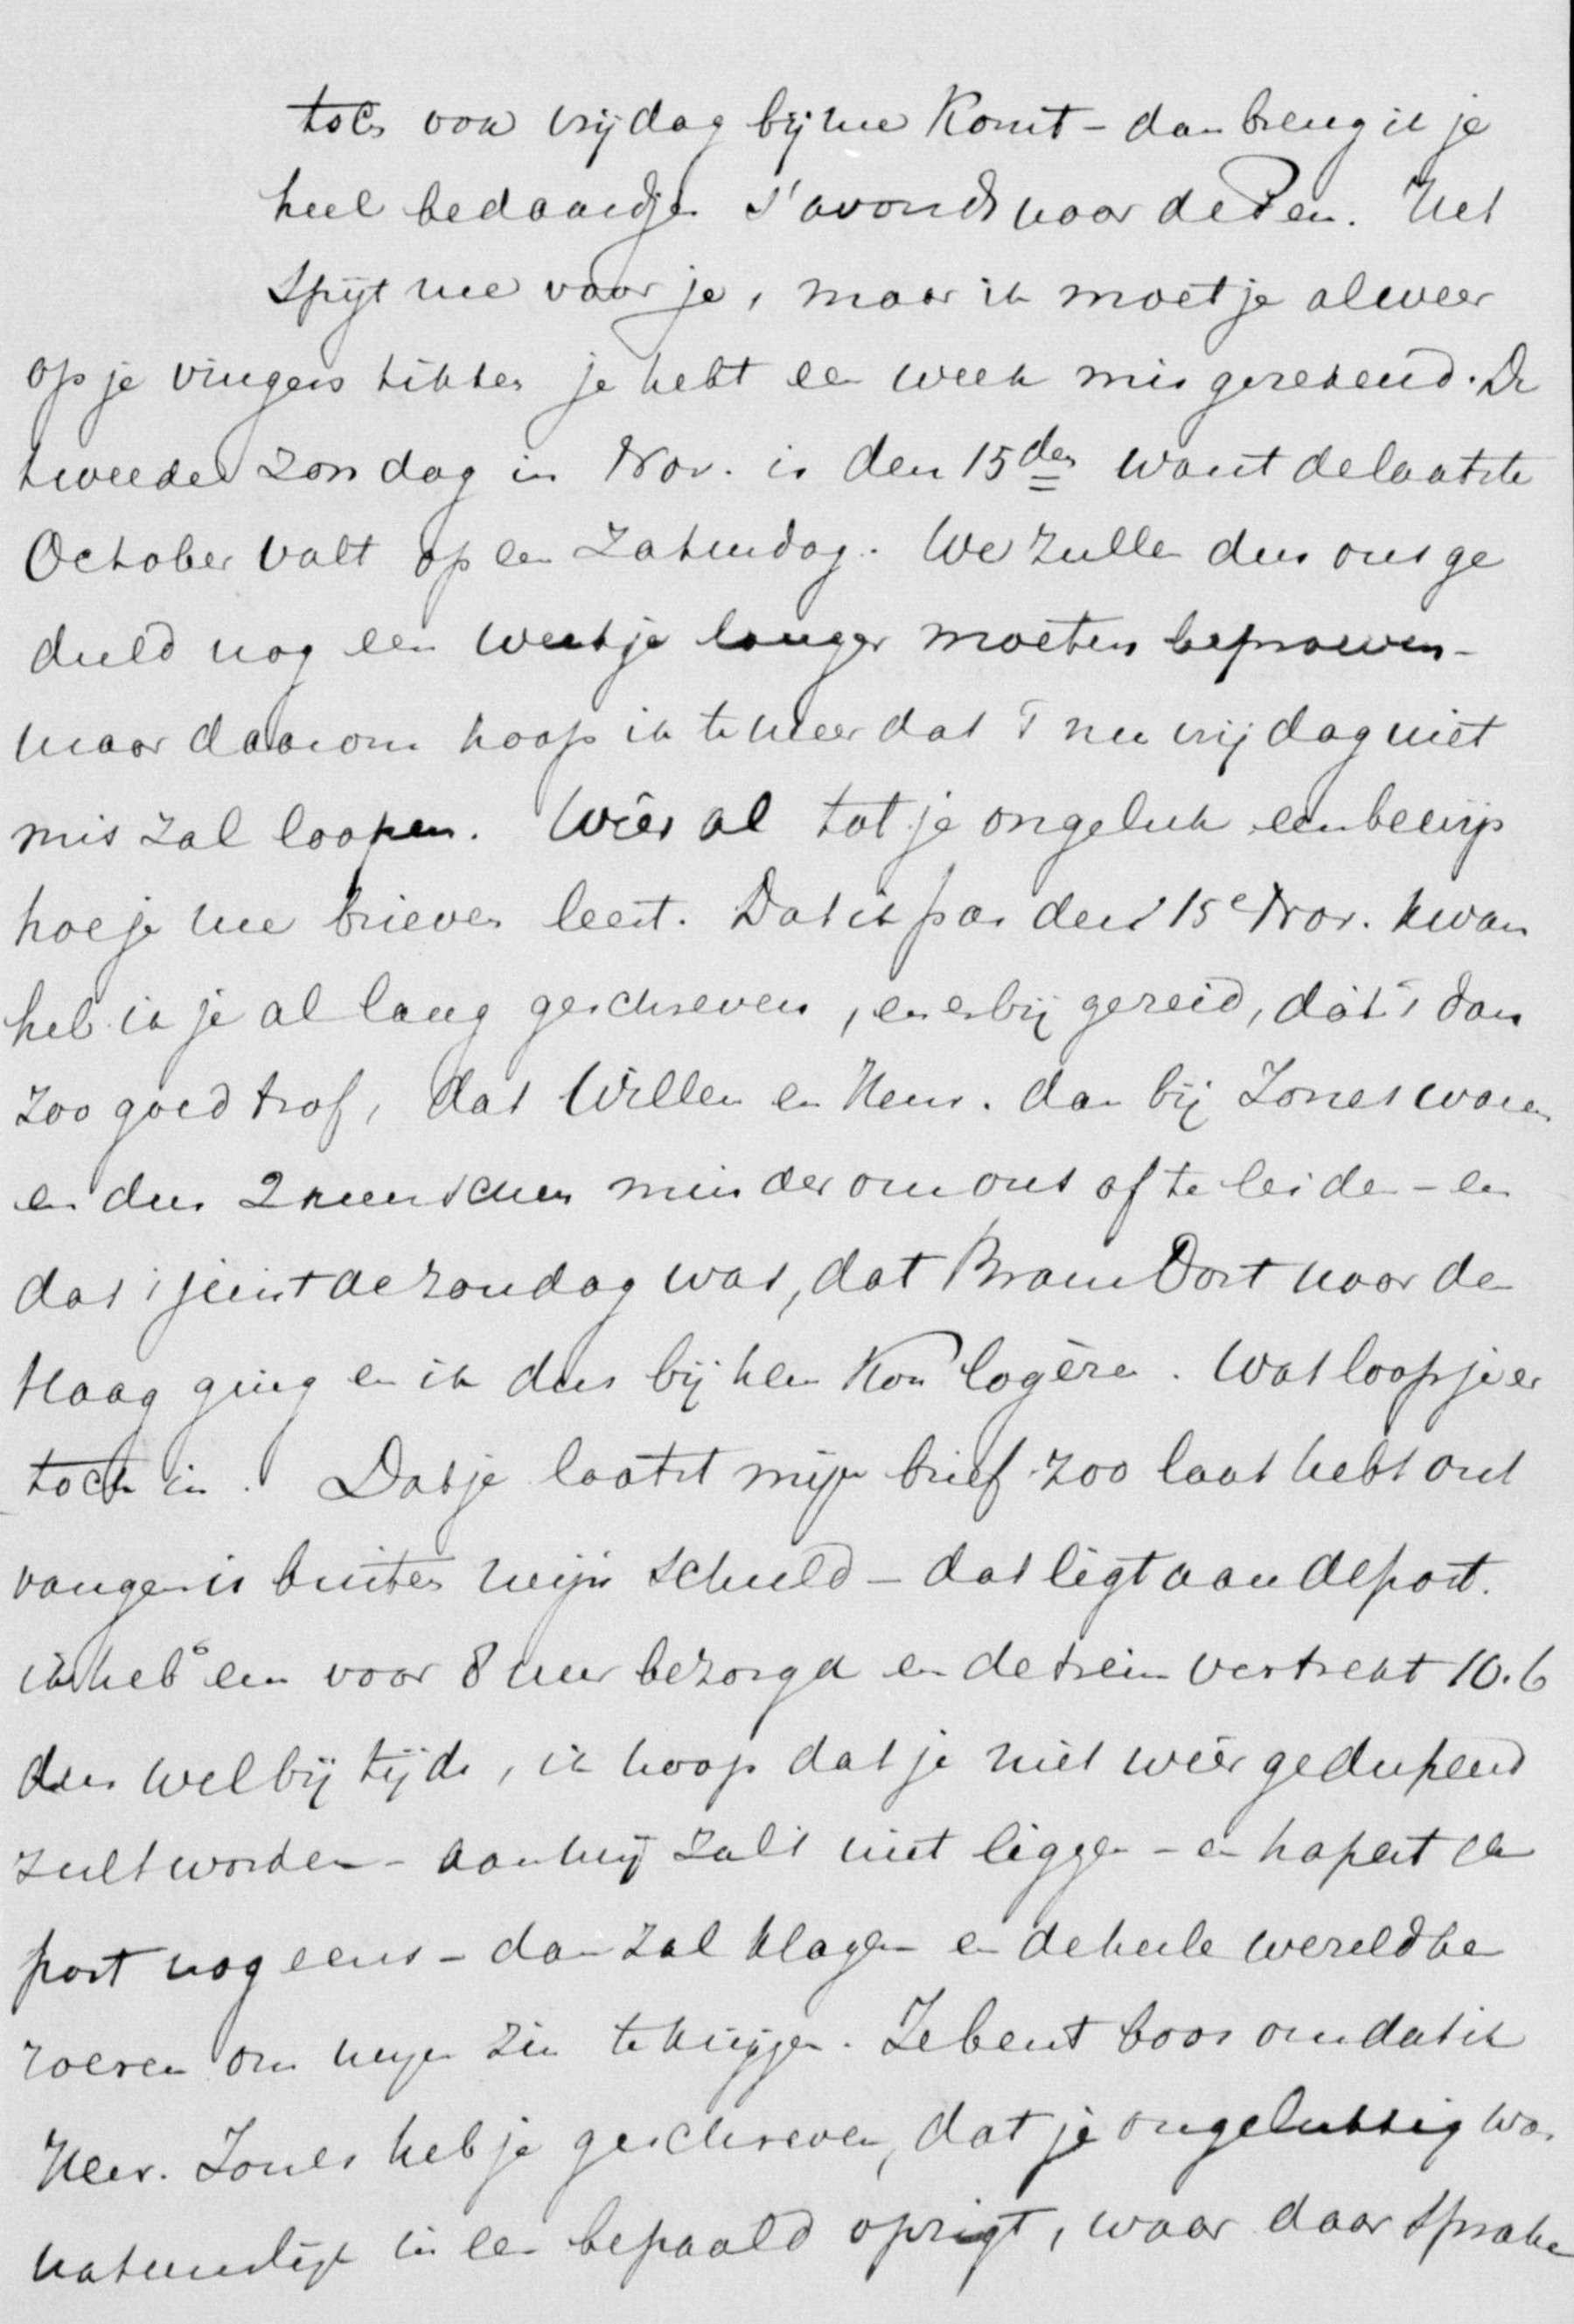 toch ook vrijdag bij me komt – dan breng ik je
heel bedaardjes s'avonds naar de Pen. Het
spijt me voor je, maar ik moet je alweer
op je vingers tikken je hebt een week mis gerekend. De
tweede zondag in Nov. is den 15den want de laatste
October valt op een Zaturdag. We zullen dus ons ge
duld nog een weekje langer moeten beproeven –
maar daarom hoop ik te meer dat 't nu vrijdag niet
mis zal loopen. Wéér al tot je ongeluk een bewijs
hoe je me brieven leest. Dat ik pas den 15e Nov. kwam
heb ik je al lang geschreven, en erbij gezeid, dat 't dan
zoo goed trof, dat Willem en Henr. dan bij Jones waren
en dus 2 menschen minder om ons af te leiden – en
dat 't juist de zondag was, dat Bram Dort naar den
Haag ging en ik dus bij hen kon logéren. Wat loop je er
toch in. Dat je laatst mijn brief zoo laat hebt ont
vangen is buiten mijn schuld – dat ligt aan de post.
ik heb em voor 8 uur bezorgd en de trein vertrekt 10.6
dus wel bij tijds, ik hoop dat je niet wéér gedupeerd
zult worden – aan mij zal 't niet liggen – en hapert de
post nog eens – dan zal klagen en de heele wereld be
roeren om mijn zin te krijgen. Je bent boos omdat ik
Henr. Jones heb je geschreven, dat je ongelukkig was
natuurlijk in een bepaald opzigt, waar daar sprake